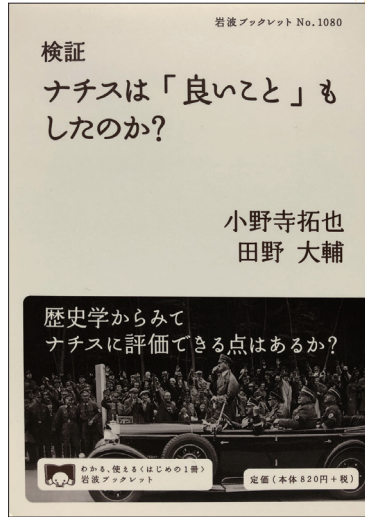 岩波ブックレット No.1080
検証
ナチスは「良いこと」も
したのか?
小野寺拓也
田野 大輔
歴史学からみて
ナチスに評価できる点はあるか?
わかる、使える〈はじめの1冊〉
岩波ブックレット
定価(本体820円+税)